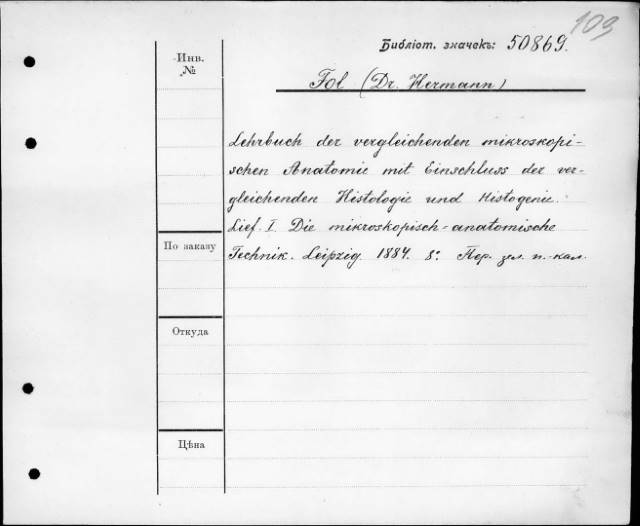 109
Библіот. значекъ: 50869.
Инв.
№
Fol (Dr. Hermann)
Lehrbuch der vergleichenden mikroskopi-
schen Anatomie mit Einschluss der ver-
gleichenden Histologie und Histogenie.
Lief. I. Die mikroskopisch-anatomische
По заказу
Technik. Leipzig. 1884. 8º. Пер. зел. п.-кал.
Откуда
Цѣна